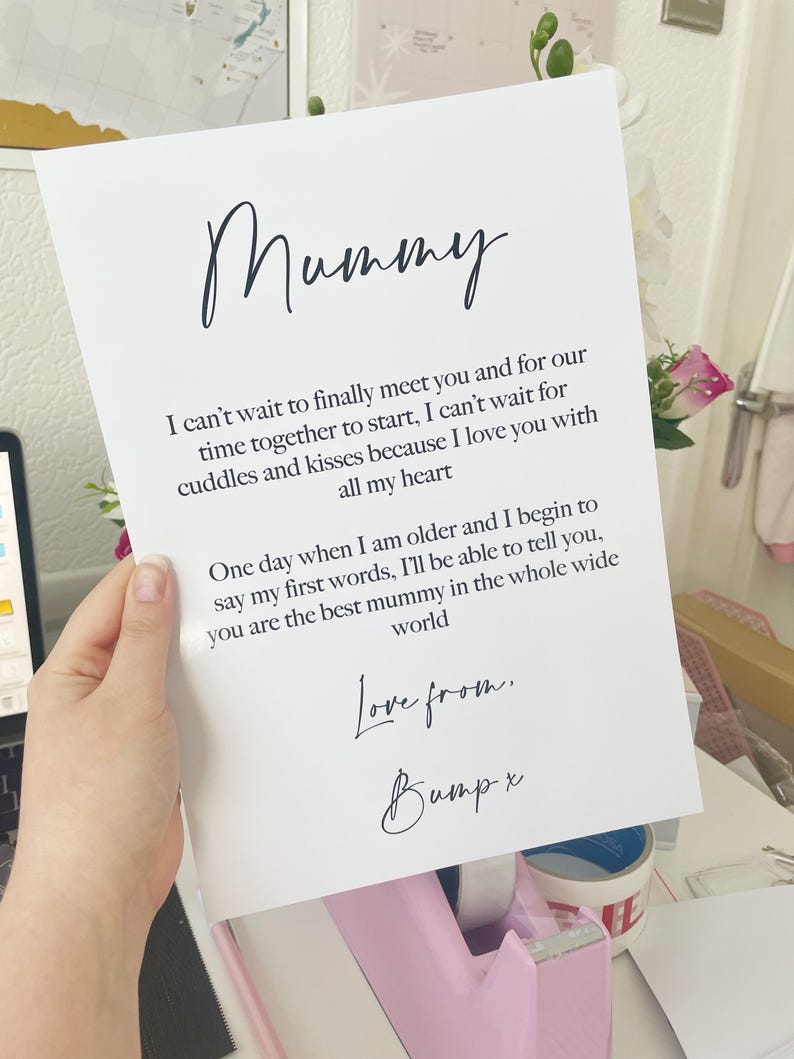 Mummy
I can't wait to finally meet you and for our
time together to start, I can't wait for
cuddles and kisses because I love you with
all my heart
One day when I am older and I begin to
say my first words, I'll be able to tell you,
you are the best mummy in the whole wide
world
Love from,
Bump x